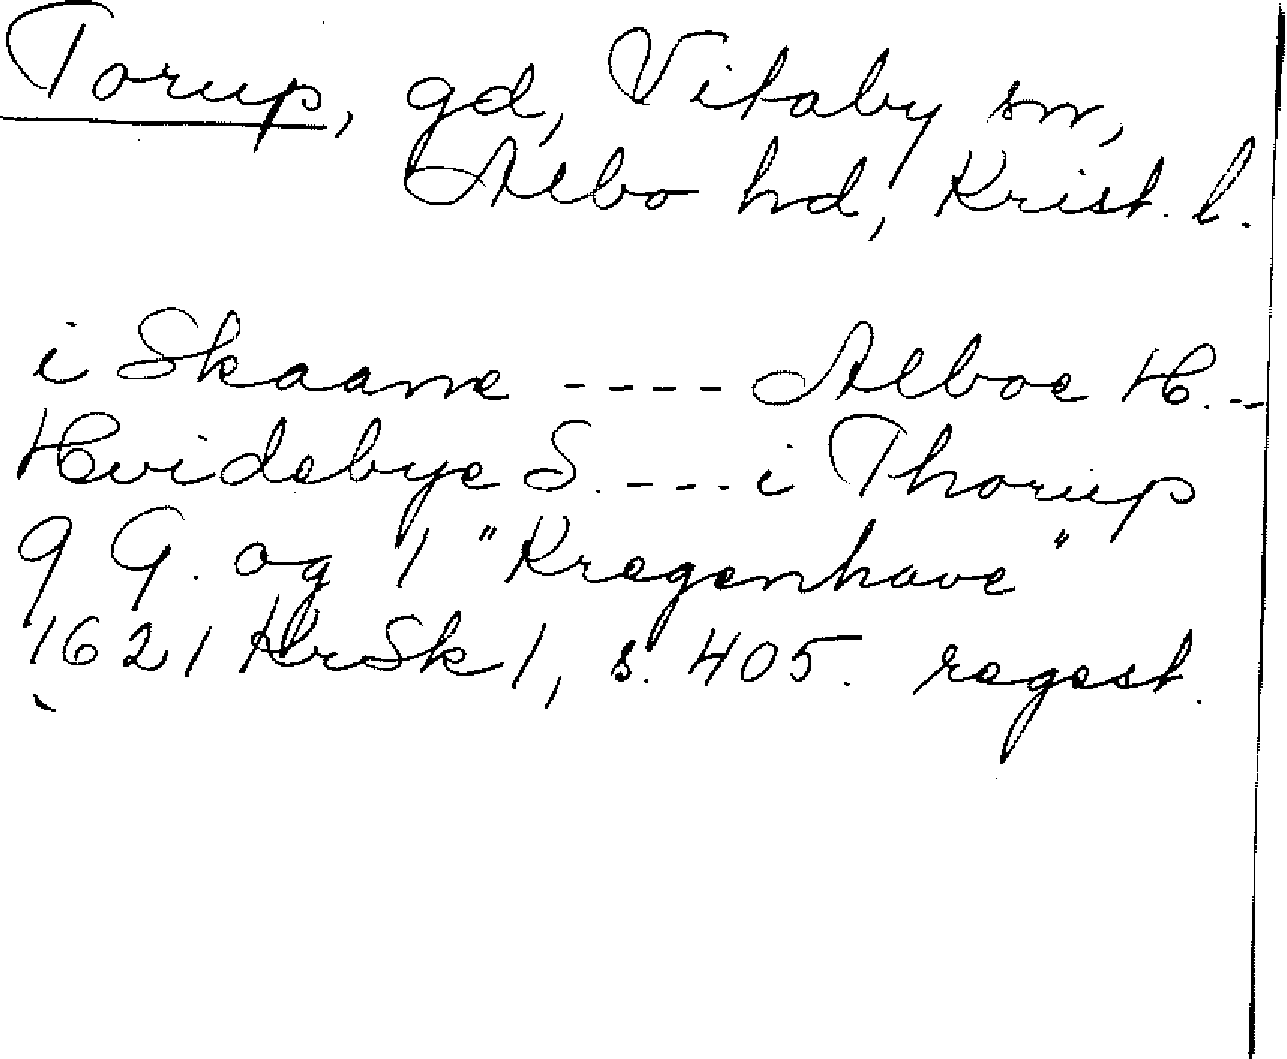 Torup, gd, Vitaby sn,
Albo hd, Krist. l.
i Skaane ---- Alboe H. --
Hvidebye S. ---- i Thorup
9 G. og 1 "Kregenhave"
1621 KrSk 1, s. 405. regest.